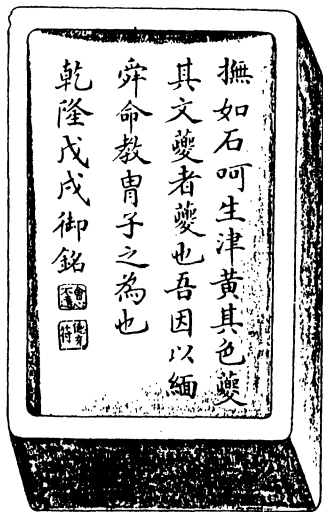 撫如石呵生津黄其色夔
其文夔者夔也吾因以緬
舜命教胄子之為也
乾隆戊戌御銘
會心不遠
德充符